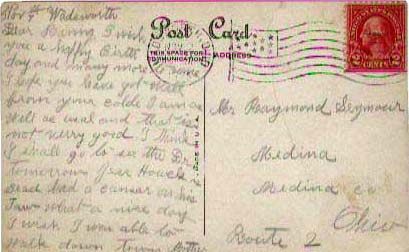 Nov 9th Wadsworth
Dear Raimy I wish
you a happy birth
day and many more
I hope you have got
from your cold I am as
well as usual and that is
not verry good I think
I shall go to see the Dr
Tomorrow
dead had a cancer on his
Jaw what a nice day
I wish I was able to
walk down town Mother
Post Card
THIS SPACE FOR
COMMUNICATION
ADDRESS
MADE IN U.S.A.
2 CENTS 2
Mr Raymond Seymour
Medina
Medina co
Ohio
Route 2